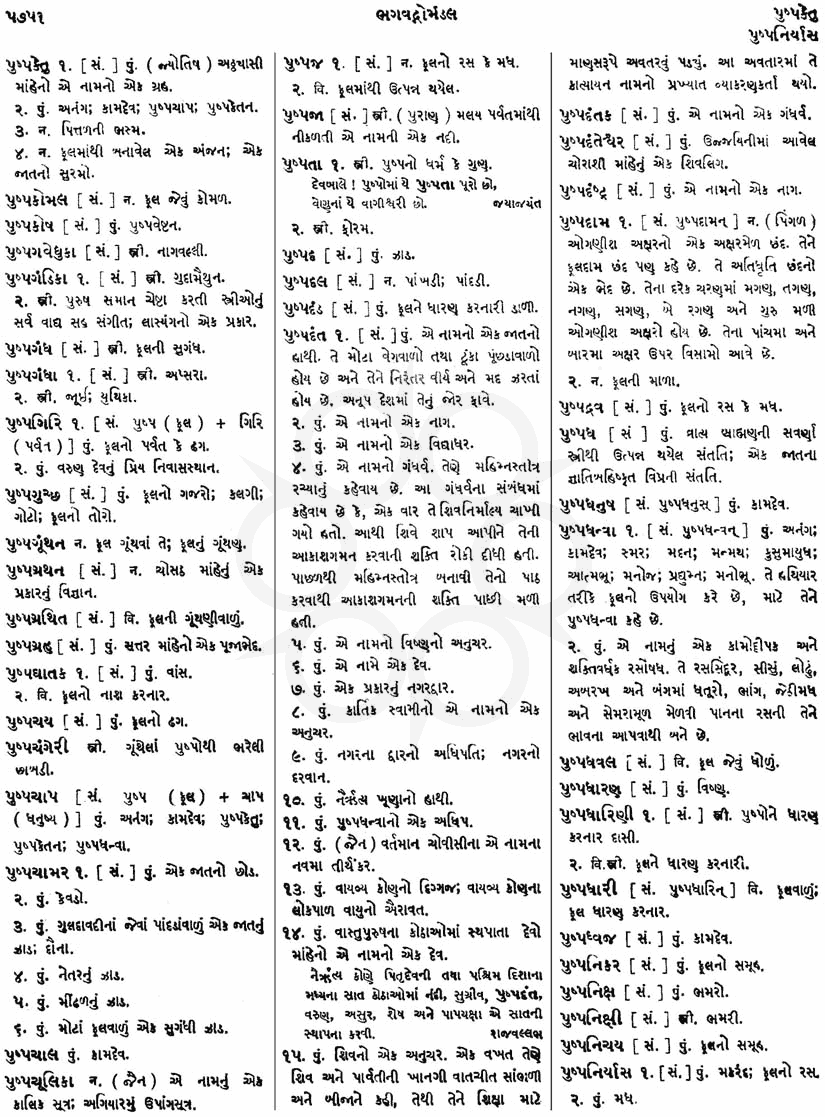 ૫૭૫૧
ભગવદ્ગોમંડલ
પુષ્પકેતુ
પુષ્પનિર્યાસ
પુષ્પકેતુ ૧. [ સં. ] પું. ( જ્યોતિષ ) અઠ્ઠયાસી
માંહેનો એ નામનો એક ગ્રહ.
૨. પું. અનંગ; કામદેવ; પુષ્પચાપ; પુષ્પકેતન.
૩. ન. પિત્તળની ભસ્મ.
૪. ન. ફૂલમાંથી બનાવેલ એક અંજન; એક
જાતનો સુરમો.
પુષ્પકોમલ [ સં. ] ન. ફૂલ જેવું કોમળ.
પુષ્પકોષ [ સં. ] પું. પુષ્પવેષ્ટન.
પુષ્પગવેધુકા [ સં. ] સ્ત્રી. નાગવલ્લી.
પુષ્પગંડિકા ૧. [ સં. ] સ્ત્રી. ગુદામૈથુન.
૨. સ્ત્રી. પુરુષ સમાન ચેષ્ટા કરતી સ્ત્રીઓનું
સર્વ વાદ્ય સહ સંગીત; લાસ્યંગનો એક પ્રકાર.
પુષ્પગંધ [ સં. ] સ્ત્રી. ફૂલની સુગંધ.
પુષ્પગંધા ૧. [ સં. ] સ્ત્રી. અપ્સરા.
૨. સ્ત્રી. જૂઈ; યુથિકા.
પુષ્પગિરિ ૧. [ સં. પુષ્પ ( ફૂલ ) + ગિરિ
( પર્વત ) ] પું. ફૂલનો પર્વત કે ઢગ.
૨. પું. વરુણ દેવનું પ્રિય નિવાસસ્થાન.
પુષ્પગુચ્છ [ સં. ] પું. ફૂલનો ગજરો; કલગી;
ગોટો; ફૂલનો તોરો.
પુષ્પગૂંથન ન. ફૂલ ગૂંથવાં તે; ફૂલનું ગૂંથણુ.
પુષ્પગ્રથન [ સં. ] ન. ચોસઠ માંહેનું એક
પ્રકારનું વિજ્ઞાન.
પુષ્પગ્રથિત [ સં. ] વિ. ફૂલની ગૂંથણીવાળું.
પુષ્પગ્રહ [ સં. ] પું. સત્તર માંહેનો એક પૂજાભેદ.
પુષ્પઘાતક ૧. [ સં. ] પું. વાંસ.
૨. વિ. ફૂલનો નાશ કરનાર.
પુષ્પચય [ સં. ] પું. ફૂલનો ઢગ.
પુષ્પચંગેરી સ્ત્રી. ગૂંથેલાં પુષ્પોથી ભરેલી
છાબડી.
પુષ્પચાપ [ સં. પુષ્પ ( ફૂલ ) + ચાપ
( ધનુષ્ય ) ] પું. અનંગ; કામદેવ; પુષ્પકેતુ;
પુષ્પકેતન; પુષ્પધન્વા.
પુષ્પચામર ૧. [ સં. ] પું. એક જાતનો છોડ.
૨. પું. કેવડો.
૩. પું. ગુલદાવદીનાં જેવાં પાંદડાંવાળું એક જાતનું
ઝાડ; દૌના.
૪. પું. નેતરનું ઝાડ.
૫. પું. મીંઢળનું ઝાડ.
૬. પું. મોટાં ફૂલવાળું એક સુગંધી ઝાડ.
પુષ્પચાલ પું. કામદેવ.
પુષ્પચૂલિકા ન. ( જૈન ) એ નામનું એક
કાલિક સૂત્ર; અગિયારમું ઉપાંગસૂત્ર.
પુષ્પજ ૧. [ સં. ] ન. ફૂલનો રસ કે મધ.
૨. વિ. ફૂલમાંથી ઉત્પન્ન થયેલ.
પુષ્પજા [ સં. ] સ્ત્રી. ( પુરાણ ) મલય પર્વતમાંથી
નીકળતી એ નામની એક નદી.
પુષ્પતા ૧. સ્ત્રી. પુષ્પનો ધર્મ કે ગુણ.
દેવબાલે ! પુષ્પોમાં યે પુષ્પતા પૂરો છો,
વેણુનાં યે વાગીશ્વરી છો. જયાજયંત
૨. સ્ત્રી. ફોરમ.
પુષ્પદ [ સં. ] પું. ઝાડ.
પુષ્પદલ [ સં. ] ન. પાંખડી; પાંદડી.
પુષ્પદંડ [ સં. ] પું. ફૂલને ધારણ કરનારી ડાળી.
પુષ્પદંત ૧. [ સં. ] પું. એ નામનો એક જાતનો
હાથી. તે મોટા વેગવાળો તથા ટૂંકા પૂંછડાવાળો
હોય છે અને તેને નિરંતર વીર્ય અને મદ ઝરતાં
હોય છે. અનૂપ દેશમાં તેનું જોર ફાવે.
૨. પું. એ નામનો એક નાગ.
૩. પું. એ નામનો એક વિદ્યાધર.
૪. પું. એ નામનો ગંધર્વ. તેણે મહિમ્નસ્તોત્ર
રચ્યાનું કહેવાય છે. આ ગંધર્વના સંબંધમાં
કહેવાય છે કે, એક વાર તે શિવનિર્માલ્ય ચાખી
ગયો હતો. આથી શિવે શાપ આપીને તેની
આકાશગમન કરવાની શક્તિ રોકી દીધી હતી.
પાછળથી મહિમ્નસ્તોત્ર બનાવી તેનો પાઠ
કરવાથી આકાશગમનની શક્તિ પાછી મળી
હતી.
૫. પું. એ નામનો વિષ્ણુનો અનુચર.
૬. પું. એ નામે એક દેવ.
૭. પું. એક પ્રકારનું નગરદ્વાર.
૮. પું. કાર્તિક સ્વામીનો એ નામનો એક
અનુચર.
૯. પું. નગરના દ્વારનો અધિપતિ; નગરનો
દરવાન.
૧૦. પું. નૈર્ઋત્ય ખૂણાનો હાથી.
૧૧. પું. પુષ્પધન્વાનો એક અધિપ.
૧૨. પું. ( જૈન ) વર્તમાન ચોવીસીના એ નામના
નવમા તીર્થંકર.
૧૩. પું. વાયવ્ય કોણનો દિગ્ગજ; વાયવ્ય કોણના
લોકપાળ વાયુનો ઐરાવત.
૧૪. પું. વાસ્તુપુરુષના કોઠાઓમાં સ્થપાતા દેવો
માંહેનો એ નામનો એક દેવ.
નૈર્ઋત્ય કોણે પિતૃદેવની તથા પશ્ચિમ દિશાના
મધ્યના સાત કોઠાઓમાં નંદી, સુગ્રીવ, પુષ્પદંત,
વરુણ, અસુર, શેષ અને પાપયક્ષ્મા એ સાતની
સ્થાપના કરવી. રાજવલ્લભ
૧૫. પું. શિવનો એક અનુચર. એક વખત તેણે
શિવ અને પાર્વતીની ખાનગી વાતચીત સાંભળી
અને બીજાને કહી, તેથી તેને શિક્ષા માટે
માણસરૂપે અવતરવું પડ્યું. આ અવતારમાં તે
કાત્યાયન નામનો પ્રખ્યાત વ્યાકરણકર્તા થયો.
પુષ્પદંતક [ સં. ] પું. એ નામનો એક ગંધર્વ.
પુષ્પદંતેશ્વર [ સં. ] પું. ઉજ્જયિનીમાં આવેલ
ચોરાશી માંહેનું એક શિવલિંગ.
પુષ્પદંષ્ટ્ર [ સં. ] પું. એ નામનો એક નાગ.
પુષ્પદામ ૧. [ સં. પુષ્પદામન્ ] ન. ( પિંગળ )
ઓગણીશ અક્ષરનો એક અક્ષરમેળ છંદ. તેને
ફૂલદામ છંદ પણ કહે છે. તે અતિધૃતિ છંદનો
એક ભેદ છે. તેના દરેક ચરણમાં મગણ, તગણ,
નગણ, સગણ, બે રગણ અને ગુરુ મળી
ઓગણીશ અક્ષરો હોય છે. તેના પાંચમા અને
બારમા અક્ષર ઉપર વિસામો આવે છે.
૨. ન. ફૂલની માળા.
પુષ્પદ્રવ [ સં. ] પું. ફૂલનો રસ કે મધ.
પુષ્પધ [ સં ] પું. વ્રાત્ય બ્રાહ્મણની સવર્ણા
સ્ત્રીથી ઉત્પન્ન થયેલ સંતતિ; એક જાતના
જ્ઞાતિબહિષ્કૃત વિપ્રની સંતતિ.
પુષ્પધનુષ [ સં. પુષ્પધનુસ્ ] પું. કામદેવ.
પુષ્પધન્વા ૧. [ સં. પુષ્પધન્વન્ ] પું. અનંગ;
કામદેવ; સ્મર; મદન; મન્મથ; કુસુમાયુધ;
આત્મભૂ; મનોજ; પ્રદ્યુમ્ન; મનોભૂ. તે હથિયાર
તરીકે ફૂલનો ઉપયોગ કરે છે, માટે તેને
પુષ્પધન્વા કહે છે.
૨. પું. એ નામનું એક કામોદ્દીપક અને
શક્તિવર્ધક રસૌષધ. તે રસસિંદૂર, સીસું, લોઢું,
અબરખ અને બંગમાં ધતૂરો, ભાંગ, જેઠીમધ
અને સેમરામૂળ મેળવી પાનના રસની તેને
ભાવના આપવાથી બને છે.
પુષ્પધવલ [ સં. ] વિ. ફૂલ જેવું ધોળું.
પુષ્પધારણ [ સં. ] પું. વિષ્ણુ.
પુષ્પધારિણી ૧. [ સં. ] સ્ત્રી. પુષ્પોને ધારણ
કરનાર દાસી.
૨. વિ.સ્ત્રી. ફૂલને ધારણ કરનારી.
પુષ્પધારી [ સં. પુષ્પધારિન્ ] વિ. ફૂલવાળું;
ફૂલ ધારણ કરનાર.
પુષ્પધ્વજ [ સં. ] પું. કામદેવ.
પુષ્પનિકર [ સં. ] પું. ફૂલનો સમૂહ.
પુષ્પનિક્ષ [ સં. ] પું. ભમરો.
પુષ્પનિક્ષી [ સં. ] સ્ત્રી. ભમરી.
પુષ્પનિચય [ સં. ] પું. ફૂલનો સમૂહ.
પુષ્પનિર્યાસ ૧. [ સં. ] પું. મકરંદ; ફૂલનો રસ.
૨. પું. મધ.